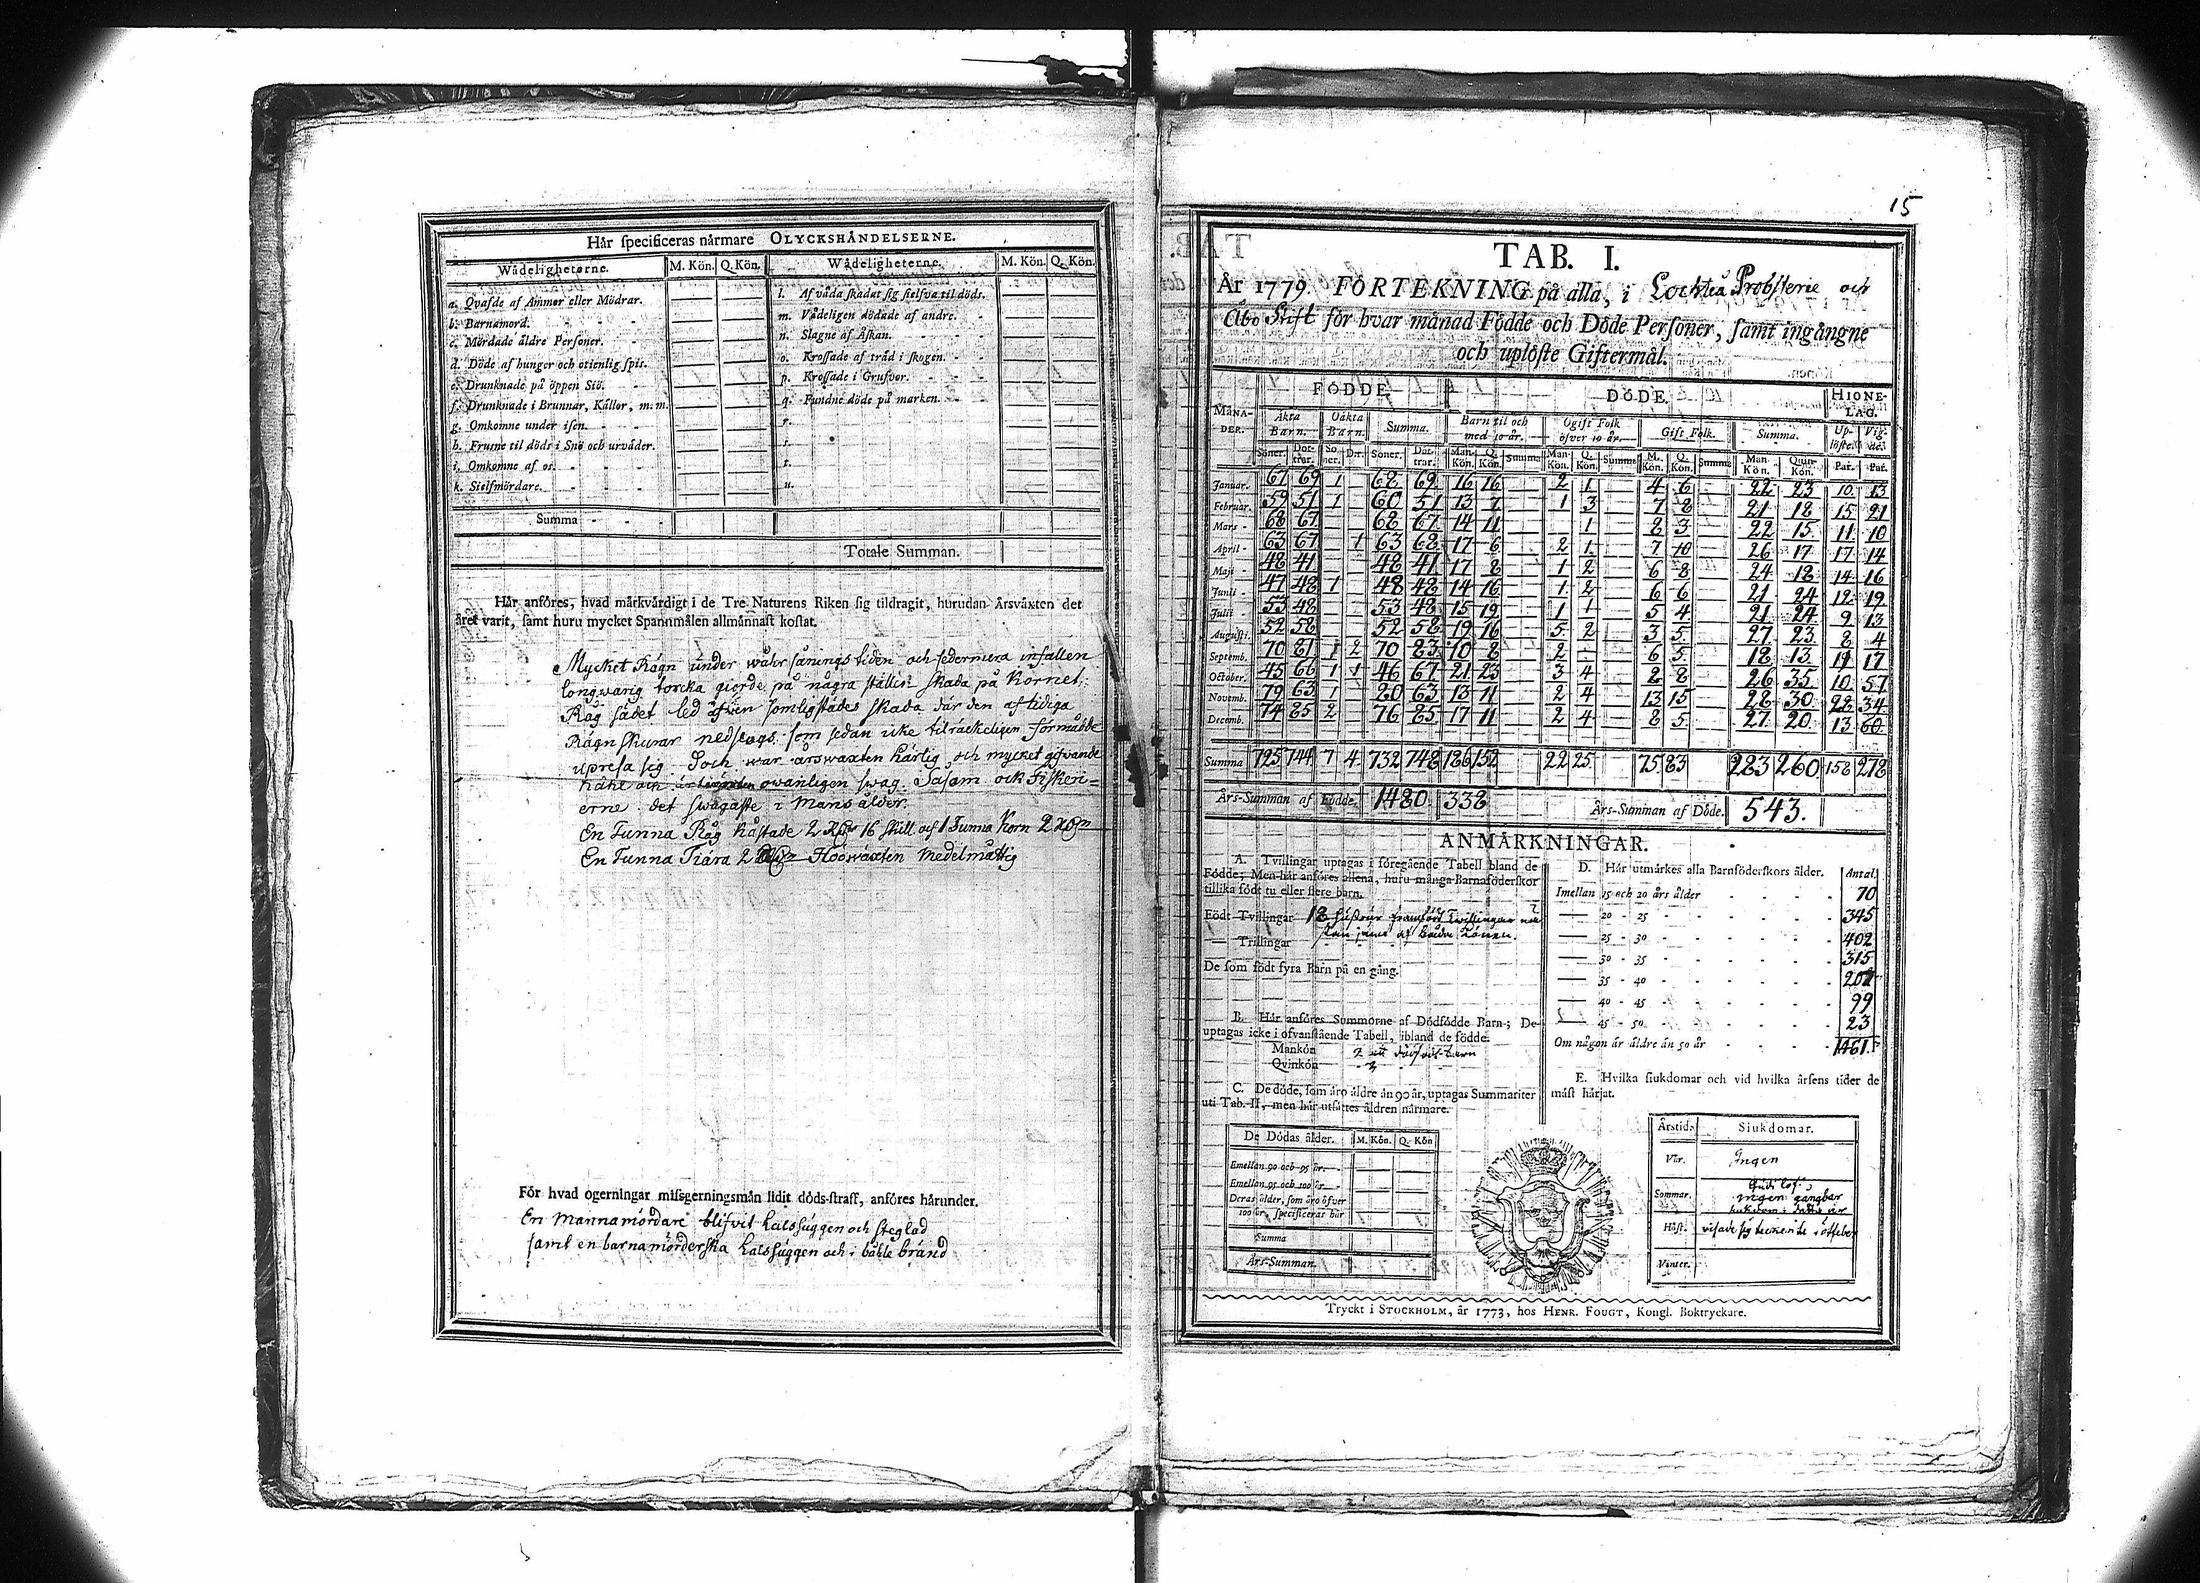 Hår specificeras nårmare OLYCKSHÅNDELSERNE.
Wådeligheterne. M. Kön. Q. Kön. Wådeligheterne. M. Kön. Q. Kön.
a. Qvafde af Ammor eller Mödrar.
b. Barnamord.
c. Mördade äldre Personer.
d. Döde af hunger och otienlig spis.
e. Drunknade på öppen Siö.
f. Drunknade i Brunnar, Kållor, m. m.
g. Omkomne under isen.
h. Frusne til döds i Snö och urväder.
i. Omkomne af os.
k. Sielfmördare.
l. Af våda skadat sig sielfva til döds.
m. Vådeligen dödade af andre.
n. Slagne af Åskan.
o. Krossade af tråd i skogen.
p. Krossade i Grufvor.
q. Fundne döde på marken.
r.
s.
t.
u.
Summa
Totale Summan.
Hår anföres, hvad mårkvårdigt i de Tre Naturens Riken sig tildragit, hurudan Årsvåxten det
året varit, samt huru mycket Spannmålen allmånnast kostat.
Mycket Rägn under wåhr såningstiden och sedermera infallen
longwarig torcka giorde på några ställen skada på Kornet.
Råg sådet led äfven somligstädes skada där den af tidiga
Rägn skurar nedslogs som sedan icke tilräckeligen förmådde
upresa sig. Doch war årswäxten härlig och mycket gifvande
owanligen swag. Såsom ock Fiskeri=
erne det swagaste i Mans ålder.
En Tunna Råg kåstade 2 Rd 16 skill och 1 Tunna Korn 2 Rd
En Tunna Tiära 2 Höowäxten Medelmåttig
För hvad ogerningar missgerningsmån lidit döds-straff, anföres hårunder.
En Mannamördare blifvit halshuggen och steglad
samt en barnamörderska halshuggen och i båhle bränd
15
TAB. I.
År 1779. FÖRTEKNING på alla, i Lochteå Probsterie och
Åbo Stift för hvar månad Födde och Döde Personer, samt ingångne
och uplöste Giftermål.
FÖDDE. DÖDE. HIONE-LAG.
MÅNA-DER. Åkta Barn. Oåkta Barn. Summa. Barn til och med 10 år. Ogift Folk öfver 10 år. Gift Folk. Summa. Up-löste. Vig-de.
Söner. Döt-trar. So-ner. Dr. Söner. Döt-trar. Man-Kön. Q. Kön. Summa Man-Kön. Q. Kön. Summa M. Kön. Q. Kön. Summa Man-Kön. Qvin-Kön. Par. Par.
Januar. 67 69 1 68 69 16 16 2 1 4 6 22 23 10 13
Februar. 59 51 1 60 51 13 7 1 3 7 8 21 18 15 21
Mars 68 67 68 67 14 11 1 8 3 22 15 11 10
April 63 67 1 63 68 17 6 2 1 7 10 26 17 17 14
Maji 48 41 48 41 17 8 1 2 6 8 24 18 14 16
Junii 47 48 1 48 48 14 16 1 2 6 6 21 24 12 19
Julii 53 48 53 48 15 19 1 1 5 4 21 24 9 13
Augusti. 52 58 52 58 19 16 5 2 3 5 27 23 8 4
Septemb. 70 81 1 2 70 83 10 8 2 6 5 18 13 17
October. 45 66 1 1 46 67 21 23 3 4 2 8 26 35 10 57
Novemb. 79 63 1 63 13 11 2 4 13 15 28 30 28 34
Decemb. 74 85 2 76 85 17 11 2 4 8 5 27 20 13 60
Summa 725 744 7 4 732 748 186 152 22 25 75 83 283 260 158 278
Års-Summan af Födde. 1480. 338 Års-Summan af Döde. 543.
ANMÅRKNINGAR.
A. Tvillingar uptagas i föregående Tabell bland de
Födde; Men hår anföres allena, huru många Barnaföderskor
tillika födt tu eller flere barn.
Födt Tvillingar 18 hustrur framfödt Twillingar
— Trillingar
De som födt fyra Barn på en gång.
B. Hår anföres Summorne af Dödfödde Barn; De
uptagas icke i ofvanstående Tabell, ibland de födde.
Mankön 2
Qvinkön
C. De döde, som åro åldre ån 90 år, uptagas Summariter
uti Tab. II, men hår utsåttes åldren nårmare.
De Dödas ålder. M. Kön. Q. Kön
Emellan 90 och 95 år.
Emellan 95 och 100 år
Deras ålder, som åro öfver
100 år, specificeras hår
Summa
Års-Summan.
D. Hår utmårkes alla Barnföderskors ålder. Antal
Imellan 15 och 20 års ålder 70
— 20 - 25 345
— 25 - 30 402
— 30 - 35 315
— 35 - 40
— 40 - 45 99
— 45 - 50 23
Om någon är åldre ån 50 år
1461.
E. Hvilka siukdomar och vid hvilka årsens tider de
måst hårjat.
Årstid. Siukdomar.
Vår. Ingen
Gudi lof
Sommar. ingen gångbar
Höst.
Vinter.
Tryckt i STOCKHOLM, år 1773, hos HENR. FOUGT, Kongl. Boktryckare.